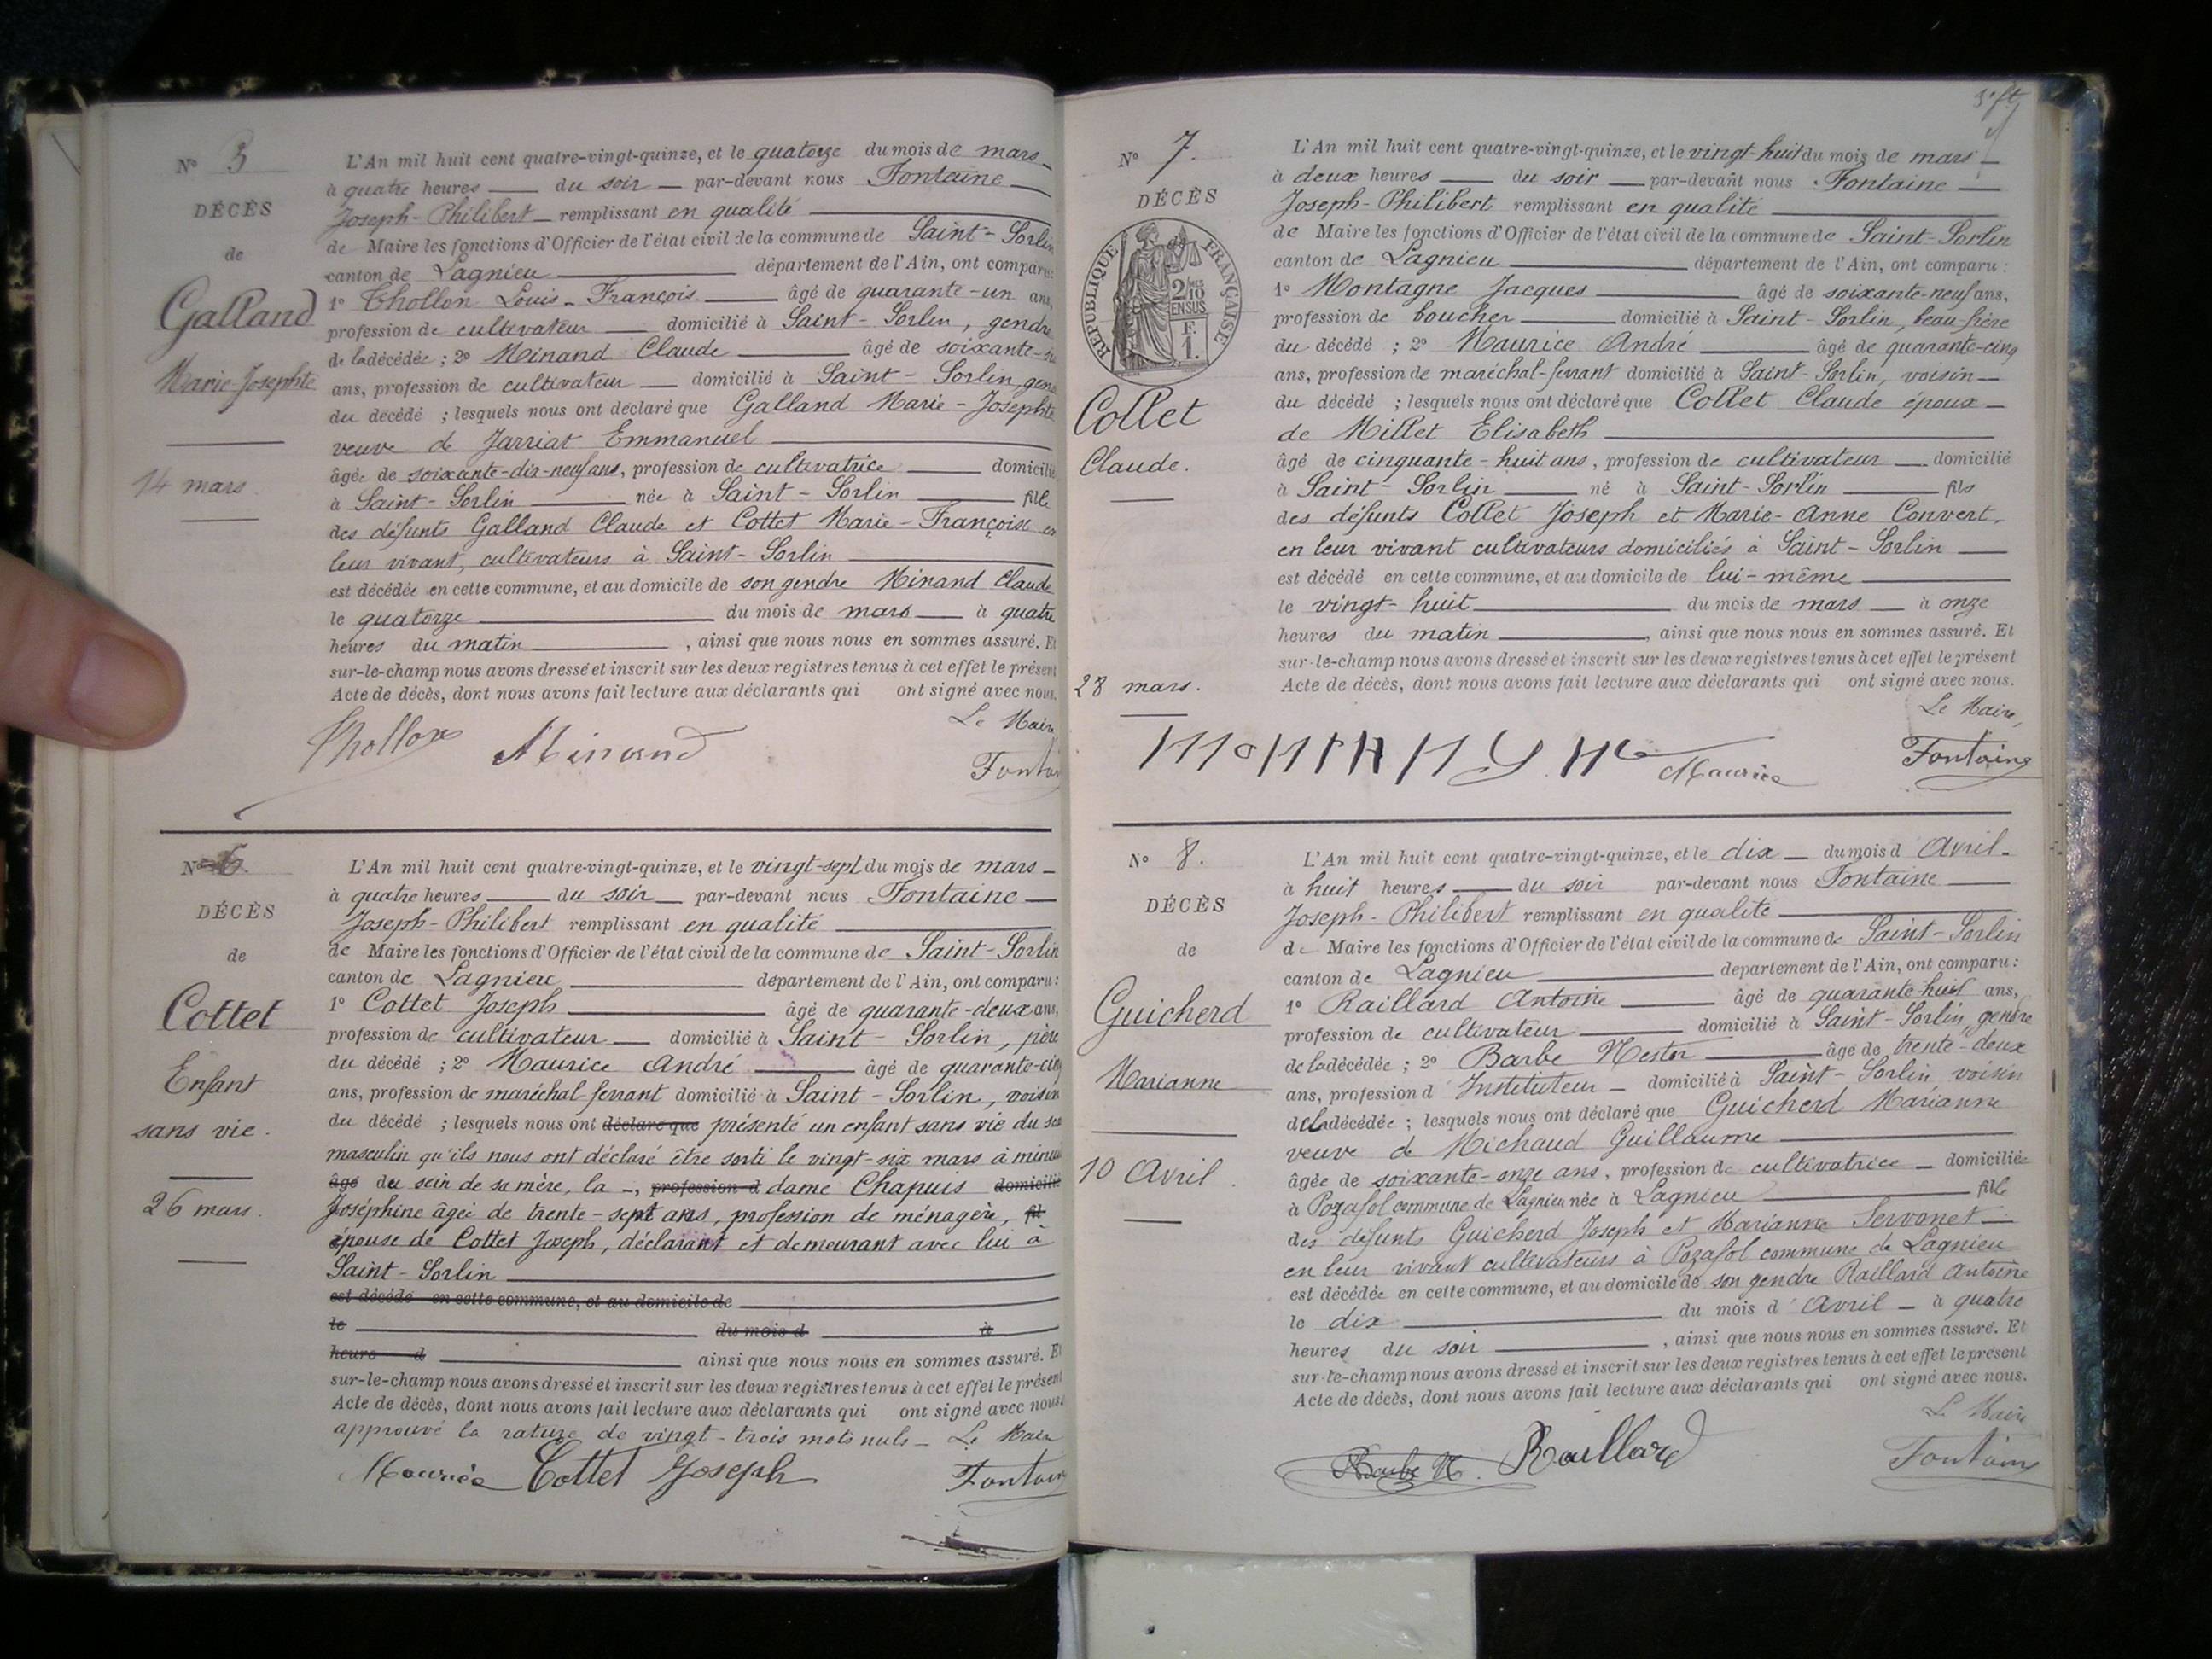 N° 5
DÉCÈS
de
Galland
Marie-Josephte
14 mars.
L'An mil huit cent quatre-vingt-quinze, et le quatorze du mois de mars
à quatre heures du soir par-devant nous Fontaine
Joseph-Philibert remplissant en qualité
de Maire les fonctions d'Officier de l'état civil de la commune de Saint-Sorlin
canton de Lagnieu département de l'Ain, ont comparu:
1° Thollon Louis-François âgé de quarante-un ans,
profession de cultivateur domicilié à Saint-Sorlin, gendre
de la décédée; 2° Minand Claude âgé de soixante-
ans, profession de cultivateur domicilié à Saint-Sorlin, gen
du décédé; lesquels nous ont déclaré que Galland Marie-Josephte
veuve de Jarriat Emmanuel
âgée de soixante-dix-neuf ans, profession de cultivatrice domicilié
à Saint-Sorlin née à Saint-Sorlin fille
des défunts Galland Claude et Cottet Marie-Françoise en
leur vivant, cultivateurs à Saint-Sorlin
est décédée en cette commune, et au domicile de son gendre Minand Claude
le quatorze du mois de mars à quatre
heures du matin, ainsi que nous nous en sommes assuré. Et
sur-le-champ nous avons dressé et inscrit sur les deux registres tenus à cet effet le présent
Acte de décès, dont nous avons fait lecture aux déclarants qui ont signé avec nous.
Le Maire
Thollon Minand Fontai
N° 6.
DÉCÈS
de
Cottet
Enfant
sans vie.
26 mars.
L'An mil huit cent quatre-vingt-quinze, et le vingt-sept du mois de mars
à quatre heures du soir par-devant nous Fontaine
Joseph-Philibert remplissant en qualité
de Maire les fonctions d'Officier de l'état civil de la commune de Saint-Sorlin
canton de Lagnieu département de l'Ain, ont comparu:
1° Cottet Joseph âgé de quarante-deux ans,
profession de cultivateur domicilié à Saint-Sorlin, père
du décédé; 2° Maurice André âgé de quarante-cinq
ans, profession de maréchal ferrant domicilié à Saint-Sorlin, voisin
du décédé; lesquels nous ont déclaré que présenté un enfant sans vie du sexe
masculin qu'ils nous ont déclaré être sorti le vingt-six mars à minuit
âgé du sein de sa mère, la, profession d dame Chapuis domicilié
Joséphine âgée de trente-sept ans, profession de ménagère, fil
épouse de Cottet Joseph, déclarant et demeurant avec lui à
Saint-Sorlin
est décédé en cette commune, et au domicile de
le du mois d à
heure d ainsi que nous nous en sommes assuré. Et
sur-le-champ nous avons dressé et inscrit sur les deux registres tenus à cet effet le présent
Acte de décès, dont nous avons fait lecture aux déclarants qui ont signé avec nous.
approuvé la rature de vingt-trois mots nuls Le Maire
Maurice Cottet Joseph Fontain
N° 7.
DÉCÈS
RÉPUBLIQUE FRANÇAISE
2/10
EN SUS
F.
1.
Collet
Claude.
28 mars.
L'An mil huit cent quatre-vingt-quinze, et le vingt-huit du mois de mars
à deux heures du soir par-devant nous Fontaine
Joseph-Philibert remplissant en qualité
de Maire les fonctions d'Officier de l'état civil de la commune de Saint-Sorlin
canton de Lagnieu département de l'Ain, ont comparu:
1° Montagne Jacques âgé de soixante-neuf ans,
profession de boucher domicilié à Saint-Sorlin, beau-frère
du décédé; 2° Maurice André âgé de quarante-cinq
ans, profession de maréchal-ferrant domicilié à Saint-Sorlin, voisin
du décédé; lesquels nous ont déclaré que Collet Claude époux
de Millet Elisabeth
âgé de cinquante-huit ans, profession de cultivateur domicilié
à Saint-Sorlin né à Saint-Sorlin fils
des défunts Collet Joseph et Marie-Anne Convert,
en leur vivant cultivateurs domiciliés à Saint-Sorlin
est décédé en cette commune, et au domicile de lui-même
le vingt-huit du mois de mars à onze
heures du matin, ainsi que nous nous en sommes assuré. Et
sur-le-champ nous avons dressé et inscrit sur les deux registres tenus à cet effet le présent
Acte de décès, dont nous avons fait lecture aux déclarants qui ont signé avec nous.
Le Maire,
Maurice Fontaine
N° 8.
DÉCÈS
de
Guicherd
Marianne
10 Avril.
L'An mil huit cent quatre-vingt-quinze, et le dix du mois d Avril
à huit heures du soir par-devant nous Fontaine
Joseph-Philibert remplissant en qualité
de Maire les fonctions d'Officier de l'état civil de la commune de Saint-Sorlin
canton de Lagnieu département de l'Ain, ont comparu:
1° Raillard Antoine âgé de quarante-huit ans,
profession de cultivateur domicilié à Saint-Sorlin, gendre
de la décédée; 2° Barbe Nestor âgé de trente-deux
ans, profession d'Instituteur domicilié à Saint-Sorlin, voisin
de la décédée; lesquels nous ont déclaré que Guicherd Marianne
veuve de Michaud Guillaume
âgée de soixante-onze ans, profession de cultivatrice domiciliée
à Pozafol commune de Lagnieu née à Lagnieu fille
des défunts Guicherd Joseph et Marianne Servonet
en leur vivant cultivateurs à Pozafol commune de Lagnieu
est décédée en cette commune, et au domicile de son gendre Raillard Antoine
le dix du mois d'Avril à quatre
heures du soir, ainsi que nous nous en sommes assuré. Et
sur-le-champ nous avons dressé et inscrit sur les deux registres tenus à cet effet le présent
Acte de décès, dont nous avons fait lecture aux déclarants qui ont signé avec nous.
Le Maire
Barbe N. Raillard Fontaine